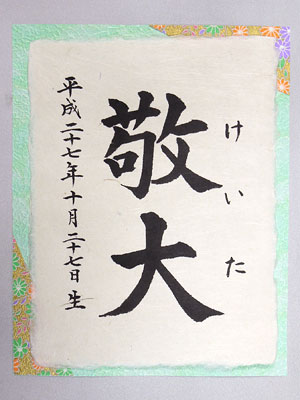 けいた
敬大
平成二十七年十月二十七日生